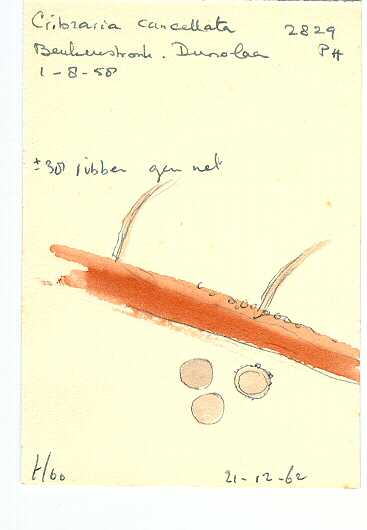 Cribraria cancellata 2829
Beukenstronk. Dunolaa PH
1-8-58
±38 ribben geen net
t/60 21-12-62